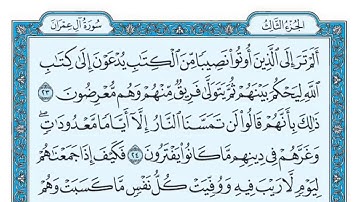 الجزء الثالث
سورة آل عمران
أَلَمْ تَرَ إِلَى ٱلَّذِينَ أُوتُوا۟ نَصِيبًا مِّنَ ٱلْكِتَٰبِ يُدْعَوْنَ إِلَىٰ كِتَٰبِ
ٱللَّهِ لِيَحْكُمَ بَيْنَهُمْ ثُمَّ يَتَوَلَّىٰ فَرِيقٌ مِّنْهُمْ وَهُم مُّعْرِضُونَ ٢٣
ذَٰلِكَ بِأَنَّهُمْ قَالُوا۟ لَن تَمَسَّنَا ٱلنَّارُ إِلَّآ أَيَّامًا مَّعْدُودَٰتٍ ۖ
وَغَرَّهُمْ فِى دِينِهِم مَّا كَانُوا۟ يَفْتَرُونَ ٢٤ فَكَيْفَ إِذَا جَمَعْنَٰهُمْ
لِيَوْمٍ لَّا رَيْبَ فِيهِ وَوُفِّيَتْ كُلُّ نَفْسٍ مَّا كَسَبَتْ وَهُمْ